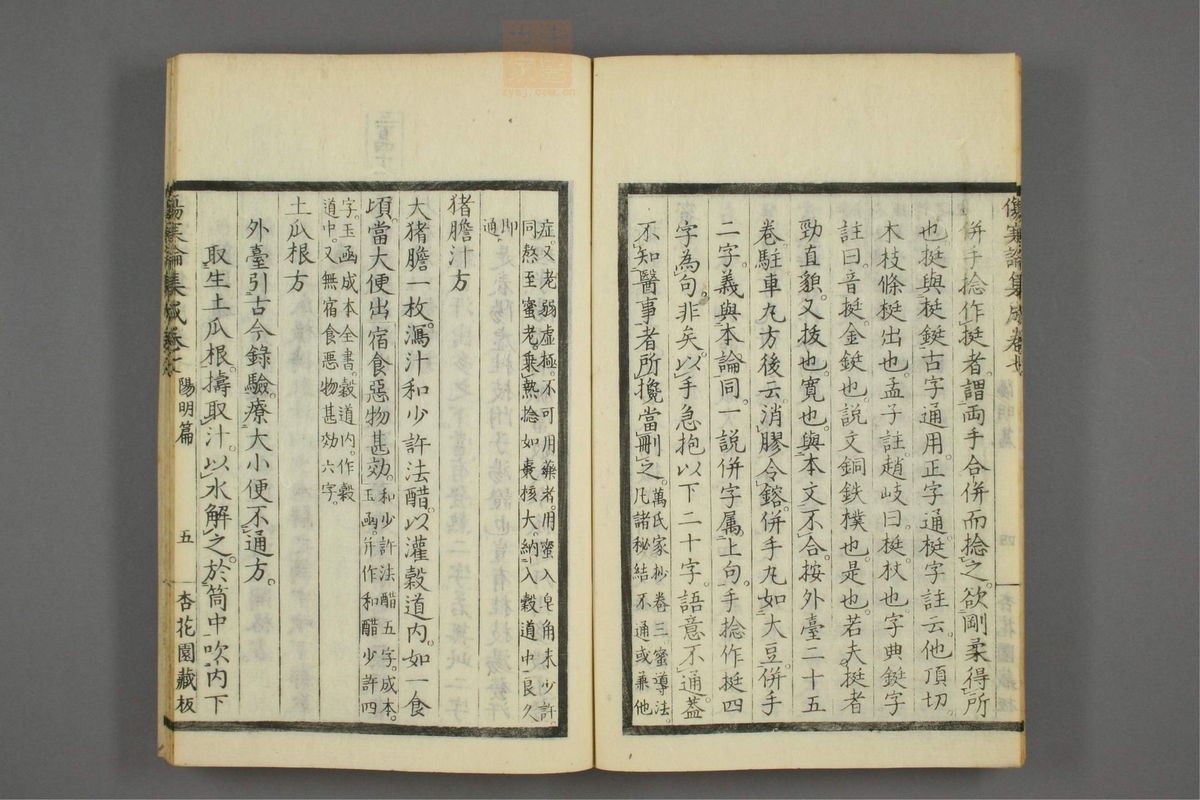 傷寒論集成卷七
併手捻作挺者。謂両手合併而捻之。欲剛柔得所
也挺與梃鋌古字通用。正字通梃字註云他頂切。
木枝條梃出也孟子註。趙岐曰。梃杖也。字典鋌字
註曰音挺。金鋌也。説文銅鉄樸也。是也。若夫挺者
勁直貌。又拔也。寛也。與本文不合。按外臺二十五
卷。駐車丸方後云。消膠令鎔。併手丸如大豆。併手
二字。義與本論同。一說併字属上句。手捻作挺四
字為句。非矣。以手急抱以下二十字。語意不通。蓋
不知醫事者所攙。當刪之。
萬氏家抄卷三。蜜導法。
凡諸秘結不通或兼他
症。又老弱虛極。不可用藥者。用蜜入皂角末少許。
同熬至蜜老。乗熱捻如棗核大。納入穀道中。良久
即通
猪膽汁方
大猪膽一枚。瀉汁和少許法醋。以灌穀道內。如一食
頃。當大便出宿食惡物甚効。
和少許法醋五字。成本。
玉函。并作和醋少許四
字。玉函成本全書。穀道内。作穀
道中。又無宿食惡物甚効六字。
土瓜根方
外臺引古今錄驗。療大小便不通方。
取生土瓜根。擣取汁。以水解之。於筒中吹內下
陽明篇
五
杏花園藏板